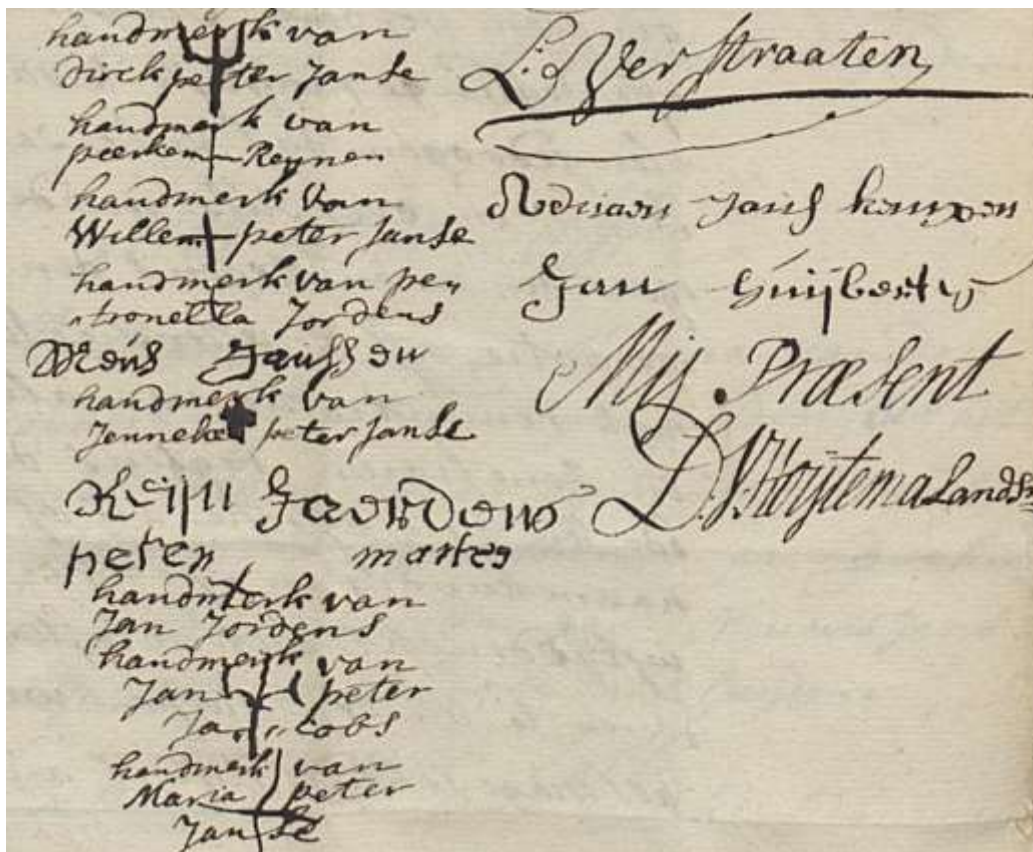 handmerk van
Dirck peter Janse
handmerk van
peerken Reynen
handmerk van
Willem peter Janse
handmerk van pe„
„tronella Jordens
Janssen
handmerk van
Jenneke peter Janse
Reijn Jaerdens
peter martes
handmerk van
Jan Jordens
handmerk van
Jan peter
Ja„„cobs
handmerk van
Maria peter
Janse
L: Verstraaten
Adriaen Jans kempen
Jan Huijberts
Mij Præsent